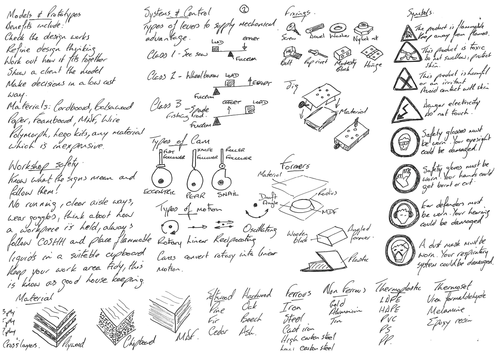 Models & Prototypes
Benefits include.
Check the design works
Refine design thinking
Work out how it fits together
Show a client the model
Make decisions in a low cost
way.
Materials: Cardboard, Balsawood
Paper, Foamboard, MDF, Wire
Polymorph, Lego kits, any material
which is inexpensive.
Workshop Safety
Know what the signs mean and
follow them!
No running, clear aide ways,
wear goggles, think about how
a workpiece is held, always
follow COSHH and place flammable
liquids in a suitable cupboard
Keep your work area tidy, this
is know as good house keeping
Material
1 ply
Cross layers.
Plywood
Chipboard
MDF.
Systems & Control
1
Types of levers to supply mechanical
advantage.
Class 1 - See saw
LOAD
EFFORT
FULCRUM
Class 2 - Wheelbarrow
LOAD
EFFORT
FULCRUM
Class 3 - Spade
Fishing Rod
EFFORT
LOAD
FULCRUM
Types of Cam
FLAT FOLLOWER
KNIFE FOLLOWER
ROLLER FOLLOWER
ECCENTRIC
PEAR
SNAIL
Types of motion
Rotary Linear Reciprocating
Oscillating
Cams convert rotary into linear
motion.
Softwood
Pine
Fir
Cedar
Hardwood
Oak
Beech
Ash.
Fixings
Screw
Washer
Nut
Bolt
Hinge
Jig
Material
Formers
Material
Draft Angle
Radius
MDF
Wooden block
Angled former
Plastic
Ferrous
Iron
Steel
Cast iron
High carbon steel
Low carbon steel
Non Ferrous
Gold
Aluminium
Tin
Thermoplastic
LDPE
HDPE
PVC
PS
PP
Thermoset
Urea formaldehyde
Melamine
Epoxy resin
Symbols
The product is flammable
keep away from flames.
This product is toxic
do not swallow. protect
skin.
This product is harmful
or an irritant
avoid contact with skin
Danger electricity
do not touch.
Safety glasses must
be worn. Your eyesight
could be damaged.
Safety gloves must
be worn. Your hands could
get burnt or cut
Ear defenders must
be worn. Your hearing
could be damaged.
A dust mask must
be worn. Your respiratory
system could be damaged.